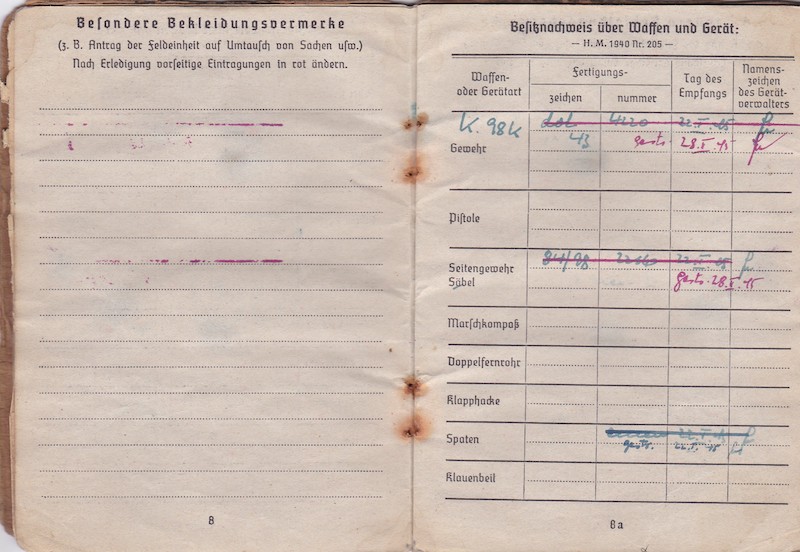 Besondere Bekleidungsvermerke
(z. B. Antrag der Feldeinheit auf Umtausch von Sachen usw.)
Nach Erledigung vorseitige Eintragungen in rot ändern.
8
Besitznachweis über Waffen und Gerät:
— H. M. 1940 Nr. 205 —
Waffen-
oder Gerätart
Fertigungs-
zeichen
nummer
Tag des
Empfangs
Namens-
zeichen
des Gerät-
verwalters
K. 98K
43
28. II. 45
Gewehr
Pistole
Seitengewehr
84/98
Säbel
28. II. 45
Marschkompaß
Doppelfernrohr
Klapphacke
Spaten
Klauenbeil
8a